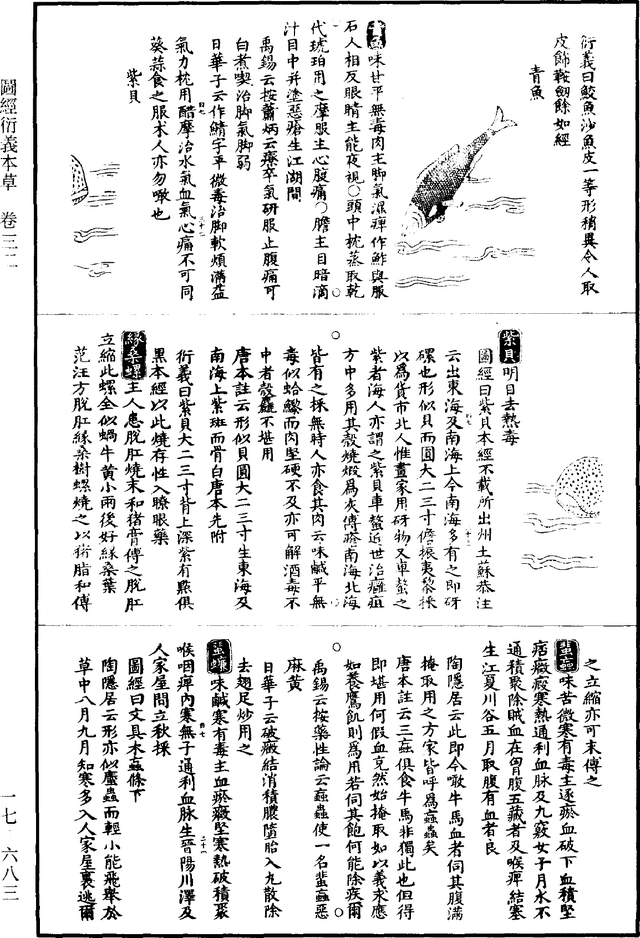 圖經衍義本草　卷三二
衍義曰鮫魚沙魚皮一等形稍異今人取
皮飾鞍劒餘如經
青魚
青魚味甘平無毒肉主脚氣濕痺作鮓與服
石人相反眼睛主能夜視○頭中枕蒸取乾
代琥珀用之摩服主心腹痛○膽主目暗滴
汁目中并塗惡瘡生江湖間
禹錫云按蕭炳云療卒氣研服止腹痛可
白煮喫治脚氣脚弱
日華子云作鯖字平微毒治脚軟煩滿益
氣力枕用醋摩治水氣血氣心痛不可同
葵蒜食之服术人亦勿噉也
紫貝
紫貝明目去熱毒
圖經曰紫貝本經不載所出州土蘇恭注
云出東海及南海上今南海多有之即砑
磥也形似貝而圓大二三寸儋振夷黎採
以爲貨市北人惟畫家用砑物又車螯之
紫者海人亦謂之紫貝車螯近世治癰疽
方中多用其殼燒煅爲灰傅瘡南海北海
皆有之採無時人亦食其肉云味鹹平無
毒似蛤蠣而肉堅硬不及亦可解酒毒不
中者殼麤不堪用
唐本註云形似貝圓大二三寸生東海及
南海上紫斑而骨白唐本先附
衍義曰紫貝大二三寸背上深紫有點俱
黑本經以此燒存性入瞭眼藥
緣桑螺主人患脫肛燒末和猪膏傅之脫肛
立縮此螺全似蝸牛黄小雨後好緣桑葉
范汪方脫肛緣桑樹螺燒之以猪脂和傅
之立縮亦可末傅之
蜚蝱味苦微寒有毒主逐瘀血破下血積堅
痞癥瘕寒熱通利血脉及九竅女子月水不
通積聚除賊血在胷腹五藏者及喉痺結塞
生江夏川谷五月取腹有血者良
陶隱居云此即今噉牛馬血者伺其腹滿
掩取用之方家皆呼爲蝱蟲矣
唐本註云三蝱俱食牛馬非獨此也但得
即堪用何假血充然始掩取如以義求應
如養鷹飢則爲用若伺其飽何能除疾爾
禹錫云按藥性論云蝱蟲使一名蜚蝱惡
麻黄
日華子云破癥結消積膿墮胎入丸散除
去翅足炒用之
蜚蠊味鹹寒有毒主血瘀癥堅寒熱破積聚
喉咽痺内寒無子通利血脉生晉陽川澤及
人家屋間立秋採
圖經曰文具木蝱條下
陶隱居云形亦似䗪蟲而輕小能飛舉於
草中八月九月知寒多入人家屋裏逃爾
一七・六八三